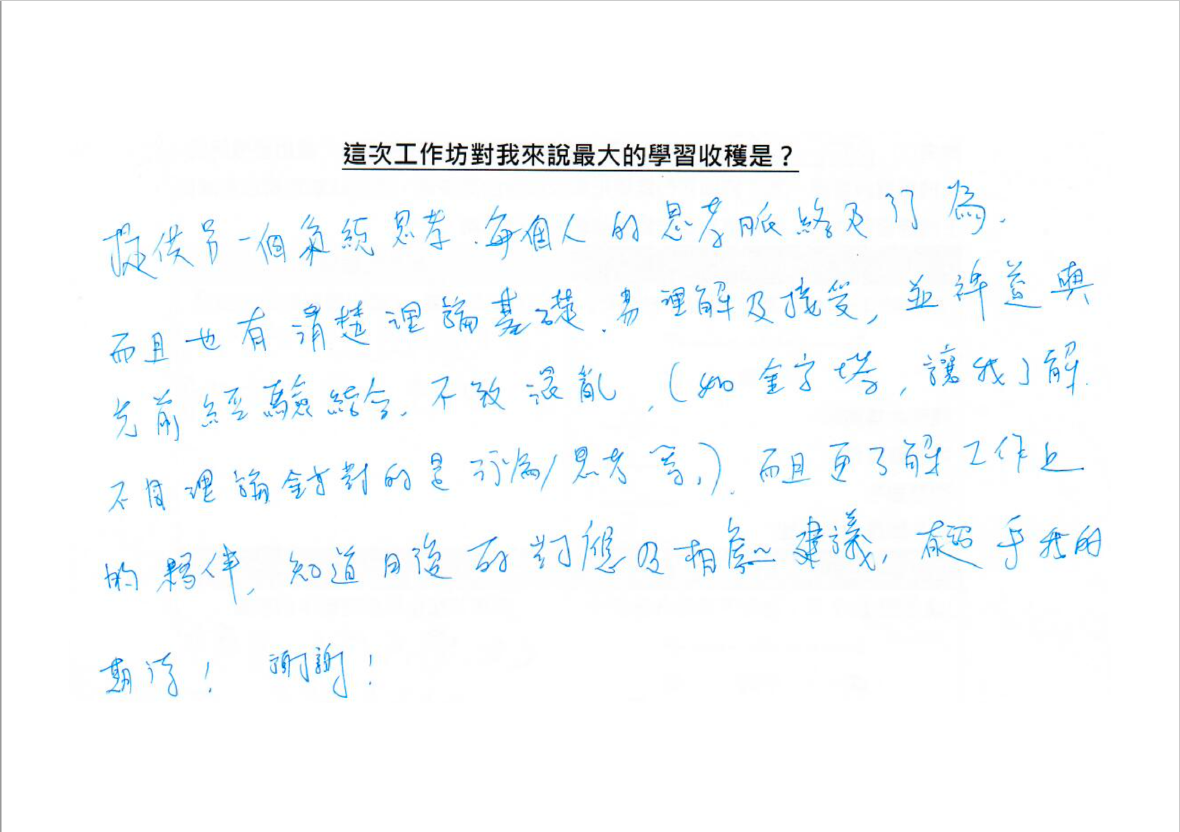 這次工作坊對我來說最大的學習收穫是？
提供另一個系統思考.每個人的思考脈絡及行為.
而且也有清楚理論基礎.易理解及接受,並能與
先前經驗結合.不致混亂.(如金字塔,讓我了解.
不同理論針對的是行為/思考等,).而且更了解工作上
的夥伴,知道日後的對應及相處建議,超乎我的
期待! 謝謝!